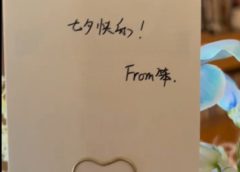 七夕快乐!
From 笨.